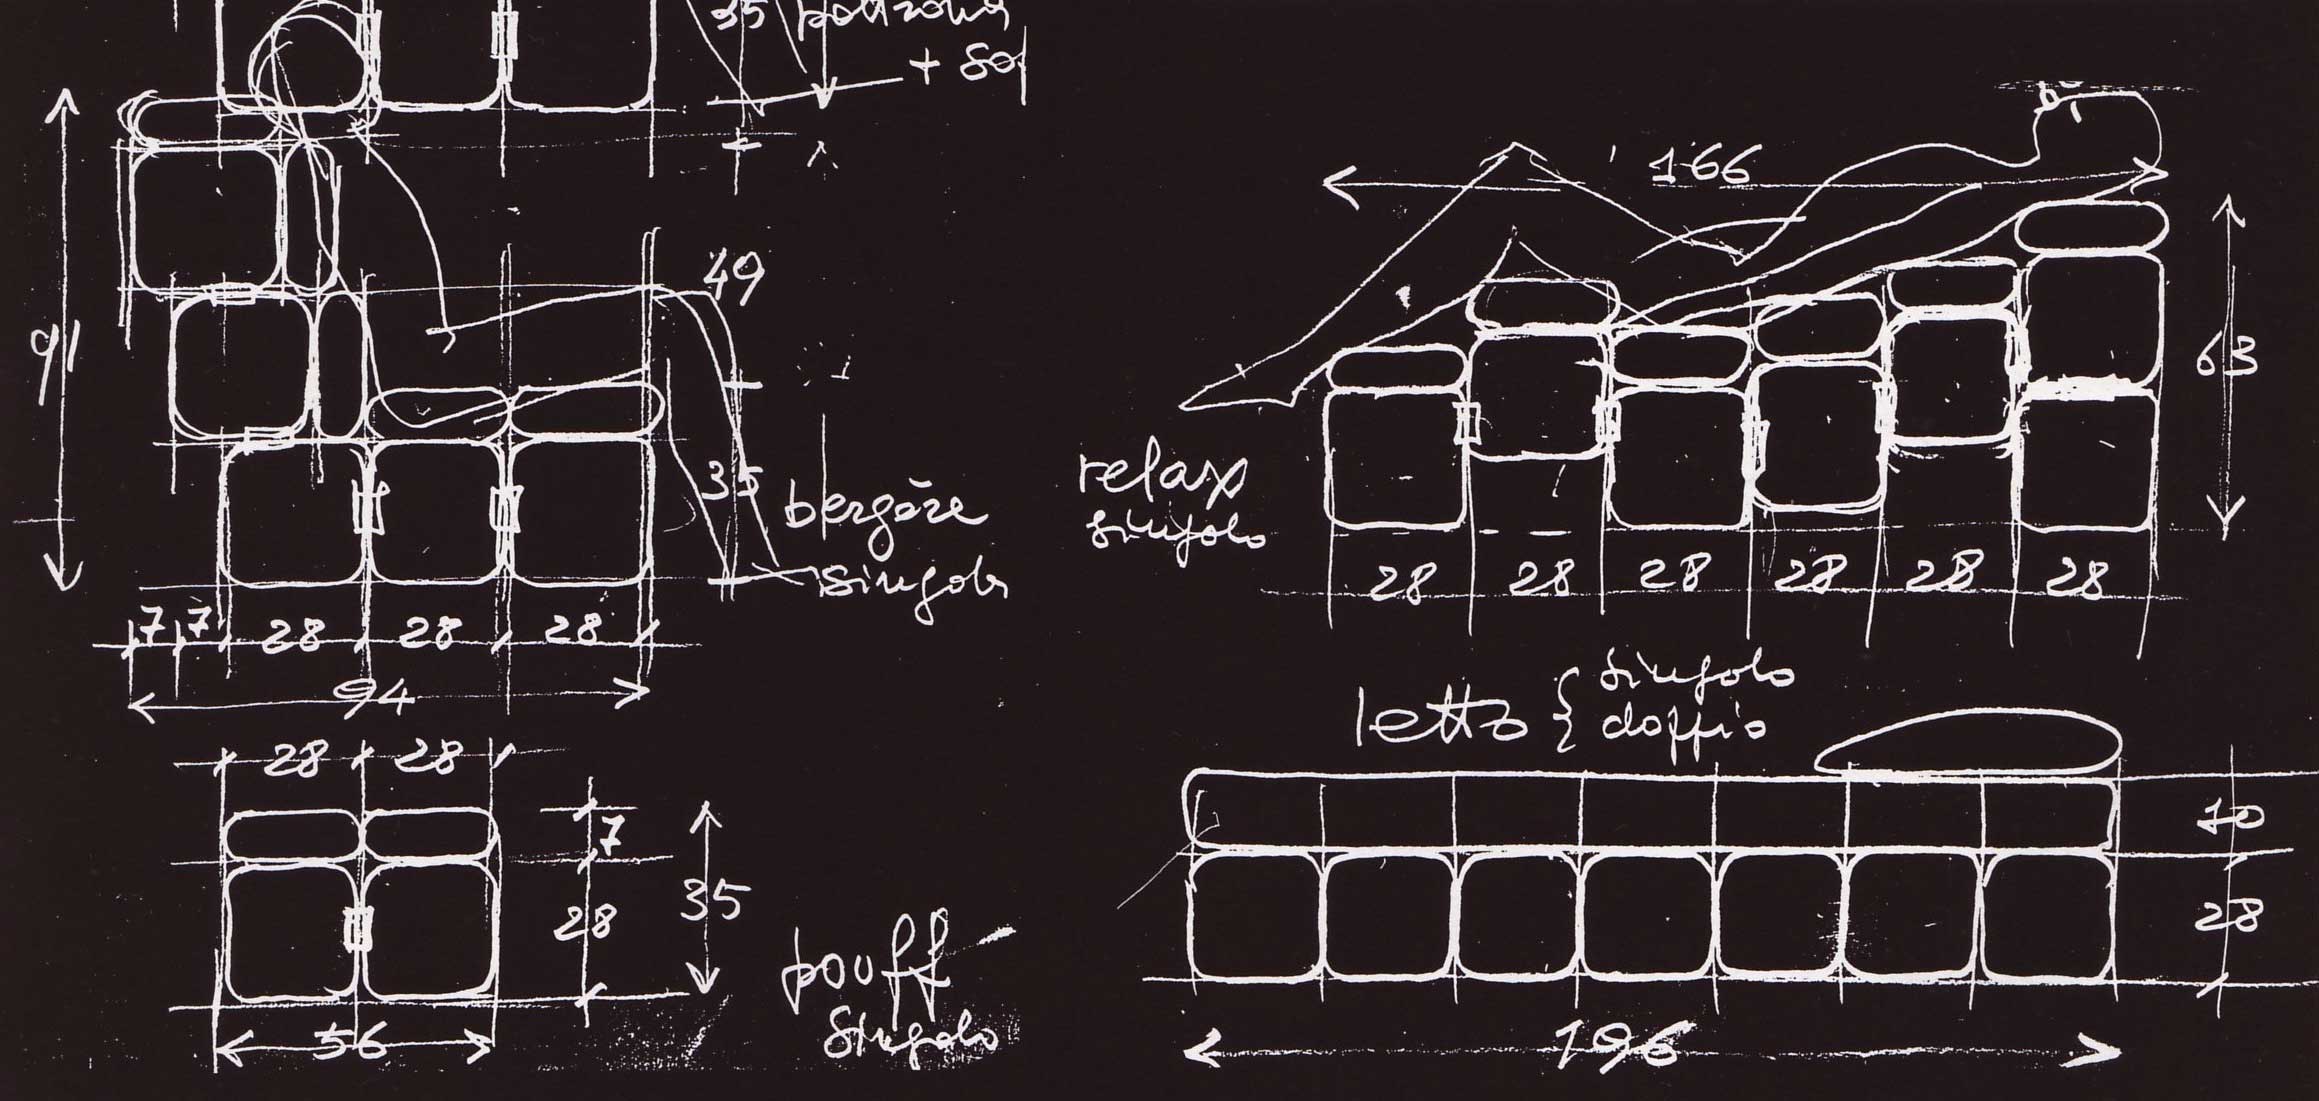 35 poltrona
+ 80
49
91
35
bergère
singola
7 7 28 28 28
94
28 28
7
28
35
pouff
singolo
56
166
63
relax
singolo
28 28 28 28 28 28
letto { singolo
doppio
10
28
196